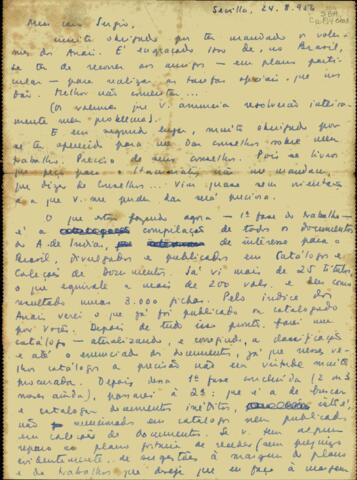 Sevilla, 24.8.956
Meu caro Sergio,
muito obrigado por ter mandado os volu-
mes dos Anais. É engraçado isso de, no Brasil,
se ter de recorrer aos amigos — em plano parti-
cular — para realizar as tarefas oficiais que nos
dão. Melhor não comentar...
(Os volumes que v. anuncia resolverão inteira-
mente meu problema).
E em segundo lugar, muito obrigado por
se ter oferecido para me dar conselhos sobre meu
trabalho. Preciso de seus conselhos. Pois se livros
que peço para o Itamaraty não me mandam,
que dizer de conselhos... Vivo quase sem orientação
e a que v. me puder dar será preciosa.
O que estou fazendo agora — 1ª fase do trabalho —
é a compilação de todos os documentos
do A. de Indias, de interesse para o
Brasil, divulgados e publicados em Catálogos e
Coleções de Documentos. Já vi mais de 25 títulos
o que equivale a mais de 200 vols. e devo com
resultado umas 3.000 fichas. Pelo índice dos
Anais verei o que já foi publicado ou catalogado
por vocês. Depois de tudo isso pronto, farei um
catálogo — atualizando, e corrigindo, a classificação
e até o enunciado dos documentos, já que nesses ve-
lhos catálogos a precisão não era virtude muito
procurada. Depois dessa 1ª fase concluída (2 ou 3
meses ainda), passarei à 2ª: que é a de buscar
e catalogar documentos inéditos, isto é,
não mencionados em catálogos nem publicados
em coleções de documentos. Se v. tem algum
reparo ao plano gostaria de receber (sem prejuízo
evidentemente, de sugestões à margem do plano
e de trabalhos que deseje que eu faça à margem